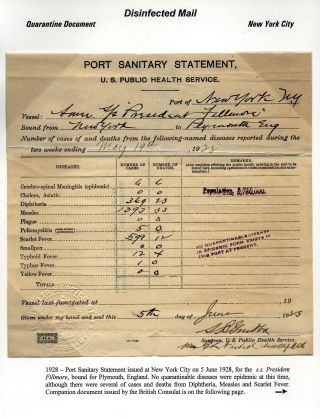 Disinfected Mail
Quarantine Document New York City
PORT SANITARY STATEMENT,
U. S. PUBLIC HEALTH SERVICE.
Port of New York NY
Vessel: Amer S/S President Fillmore
Bound from New York to Plymouth Eng
Number of cases of and deaths from the following-named diseases reported during the
two weeks ending May 19th 1928
DISEASES. NUMBER OF CASES. NUMBER OF DEATHS. REMARKS
Cerebro-spinal Meningitis (epidemic) 6 6
Cholera, Asiatic 0 0
Diphtheria
Measles 33
Plague 0 0
Poliomyelitis 5 0
Scarlet Fever 12
Smallpox 0 0
Typhoid Fever 12 4
Typhus Fever 1 0
Yellow Fever 0 0
TOTALS
NO QUARANTINABLE DISEASE
IN EPIDEMIC FORM EXISTS IN
THIS PORT AT PRESENT.
Vessel last fumigated at 19
Given under my hand and seal this 5th day of June 1928
Surgeon, U. S. Public Health Service.
1928 – Port Sanitary Statement issued at New York City on 5 June 1928, for the s.s. President
Fillmore, bound for Plymouth, England. No quarantinable diseases were epidemic at this time,
although there were several of cases and deaths from Diphtheria, Measles and Scarlet Fever.
Companion document issued by the British Consulat is on the following page.